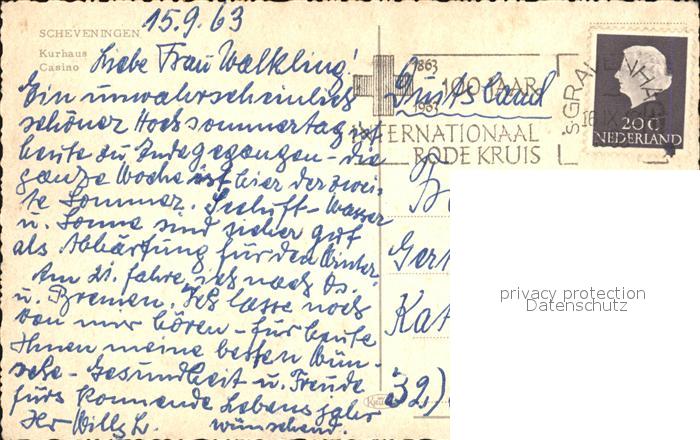 SCHEVENINGEN
15.9.63
Kurhaus
Casino
Liebe Frau Walkling!
Ein unwahrscheinlich
schöner Hochsommertag ist
heute zu Ende gegangen - die
ganze Woche ist hier der zwei-
te Sommer. Seeluft - Wasser
u. Sonne sind sicher gut
als Abhärtung für den Winter.
Am 21. fahre ich nach
u. Bremen. Ich lasse noch
von mir hören - für heute
Ihnen meine besten Wün-
sche - Gesundheit u. Freude
fürs kommende Lebensjahr
Ihr Willy L. wünschend.
1863
100 JAAR
1963
INTERNATIONAAL
RODE KRUIS
'S GRAVENHAGE
20 C
NEDERLAND
Duitsland
Ger
Kat
32)
privacy protection
Datenschutz